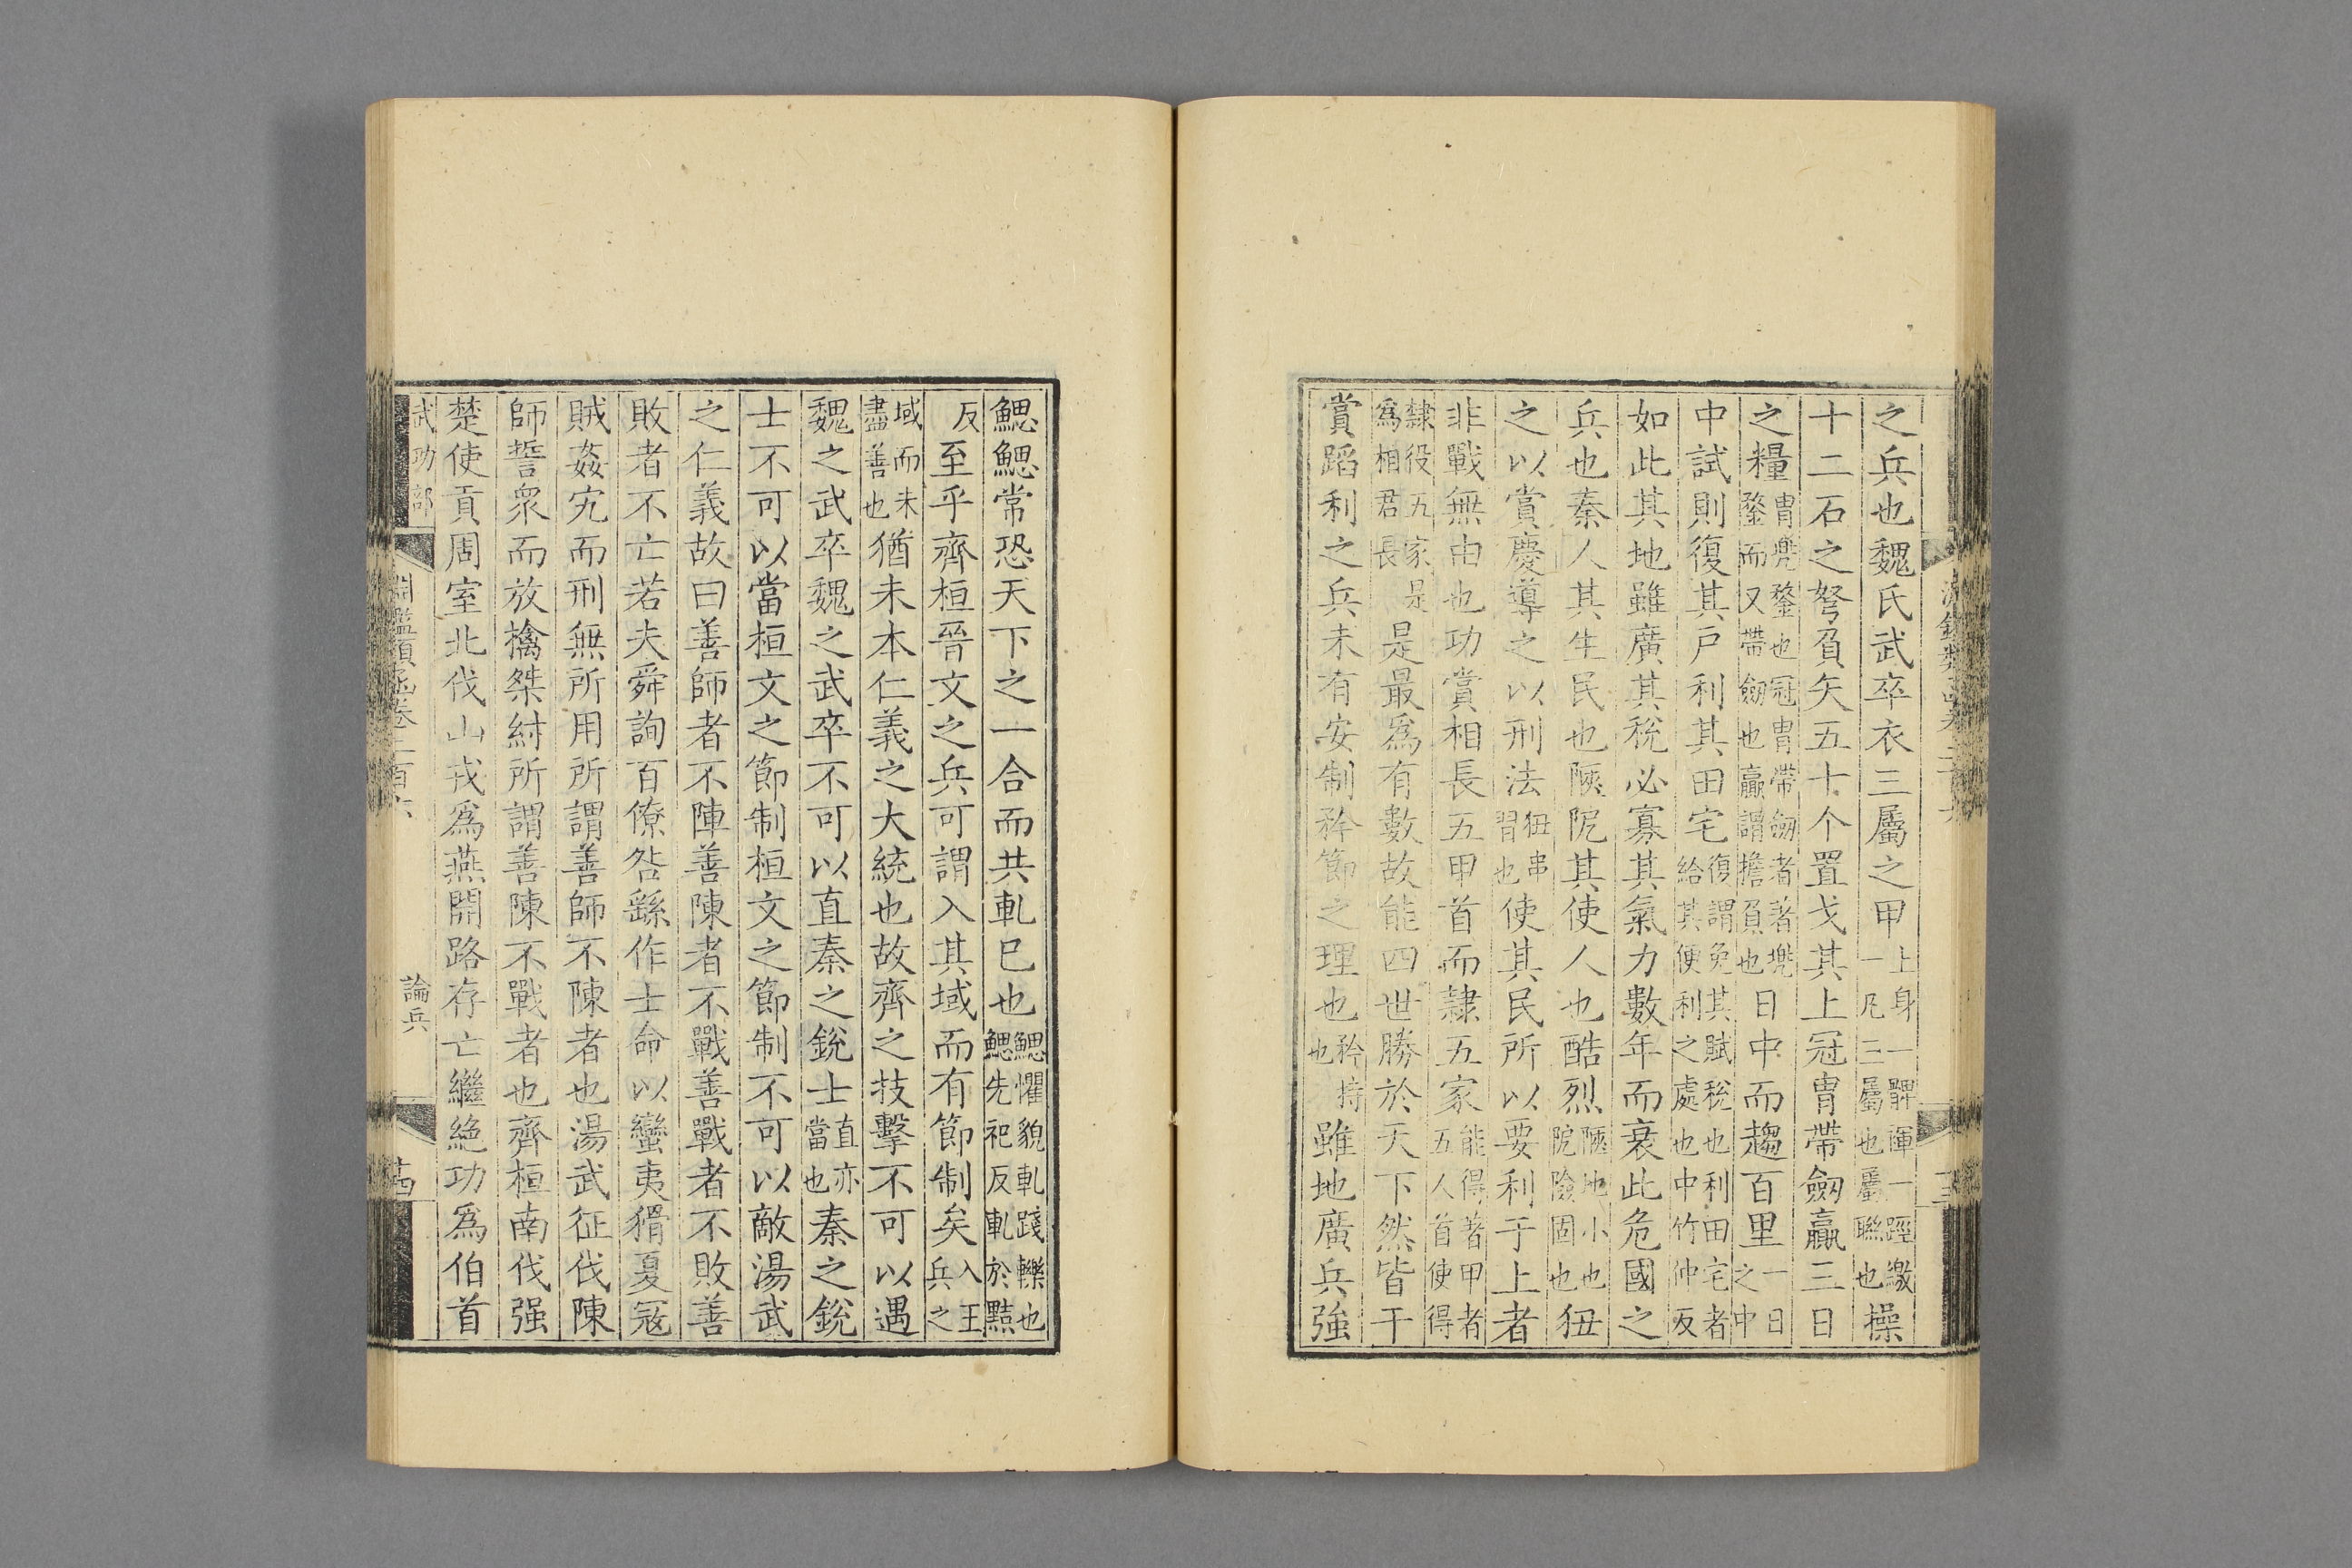 之兵也魏氏武卒衣三屬之甲上身一髀褌一踁繳一凡三屬也屬聯也操
十二石之弩負矢五十个置戈其上冠胄帶劒贏三日
之糧胄兠鍪也冠胄帶劒者著兠鍪而又帶劒也贏謂擔負也日中而趨百里一日之中
中試則復其戸利其田宅復謂免其賦税也利田宅者給其便利之處也中竹仲反
如此其地雖廣其税必寡其氣力數年而衰此危國之
兵也秦人其生民也陿阸其使人也酷烈陿地小也阸險固也狃
之以賞慶導之以刑法狃串習也使其民所以要利于上者
非戰無由也功賞相長五甲首而隸五家能得著甲者五人首使得
隸役五家是爲相君長是最爲有數故能四世勝於天下然皆干
賞蹈利之兵未有安制矜節之理也矜持也雖地廣兵強
鰓鰓常恐天下之一合而共軋巳也鰓懼貌軋踐轢也鰓先祀反軋於黠
反至乎齊桓晉文之兵可謂入其域而有節制矣入王兵之
域而未盡善也猶未本仁義之大統也故齊之技擊不可以遇
魏之武卒魏之武卒不可以直秦之銳士直亦當也秦之銳
士不可以當桓文之節制桓文之節制不可以敵湯武
之仁義故曰善師者不陣善陳者不戰善戰者不敗善
敗者不亡若夫舜詢百僚咎繇作士命以蠻夷猾夏寇
賊姦宄而刑無所用所謂善師不陳者也湯武征伐陳
師誓衆而放擒桀紂所謂善陳不戰者也齊桓南伐强
楚使貢周室北伐山戎爲燕開路存亡繼絶功爲伯首
武功部
淵鑑類函卷二百六
論兵
十四